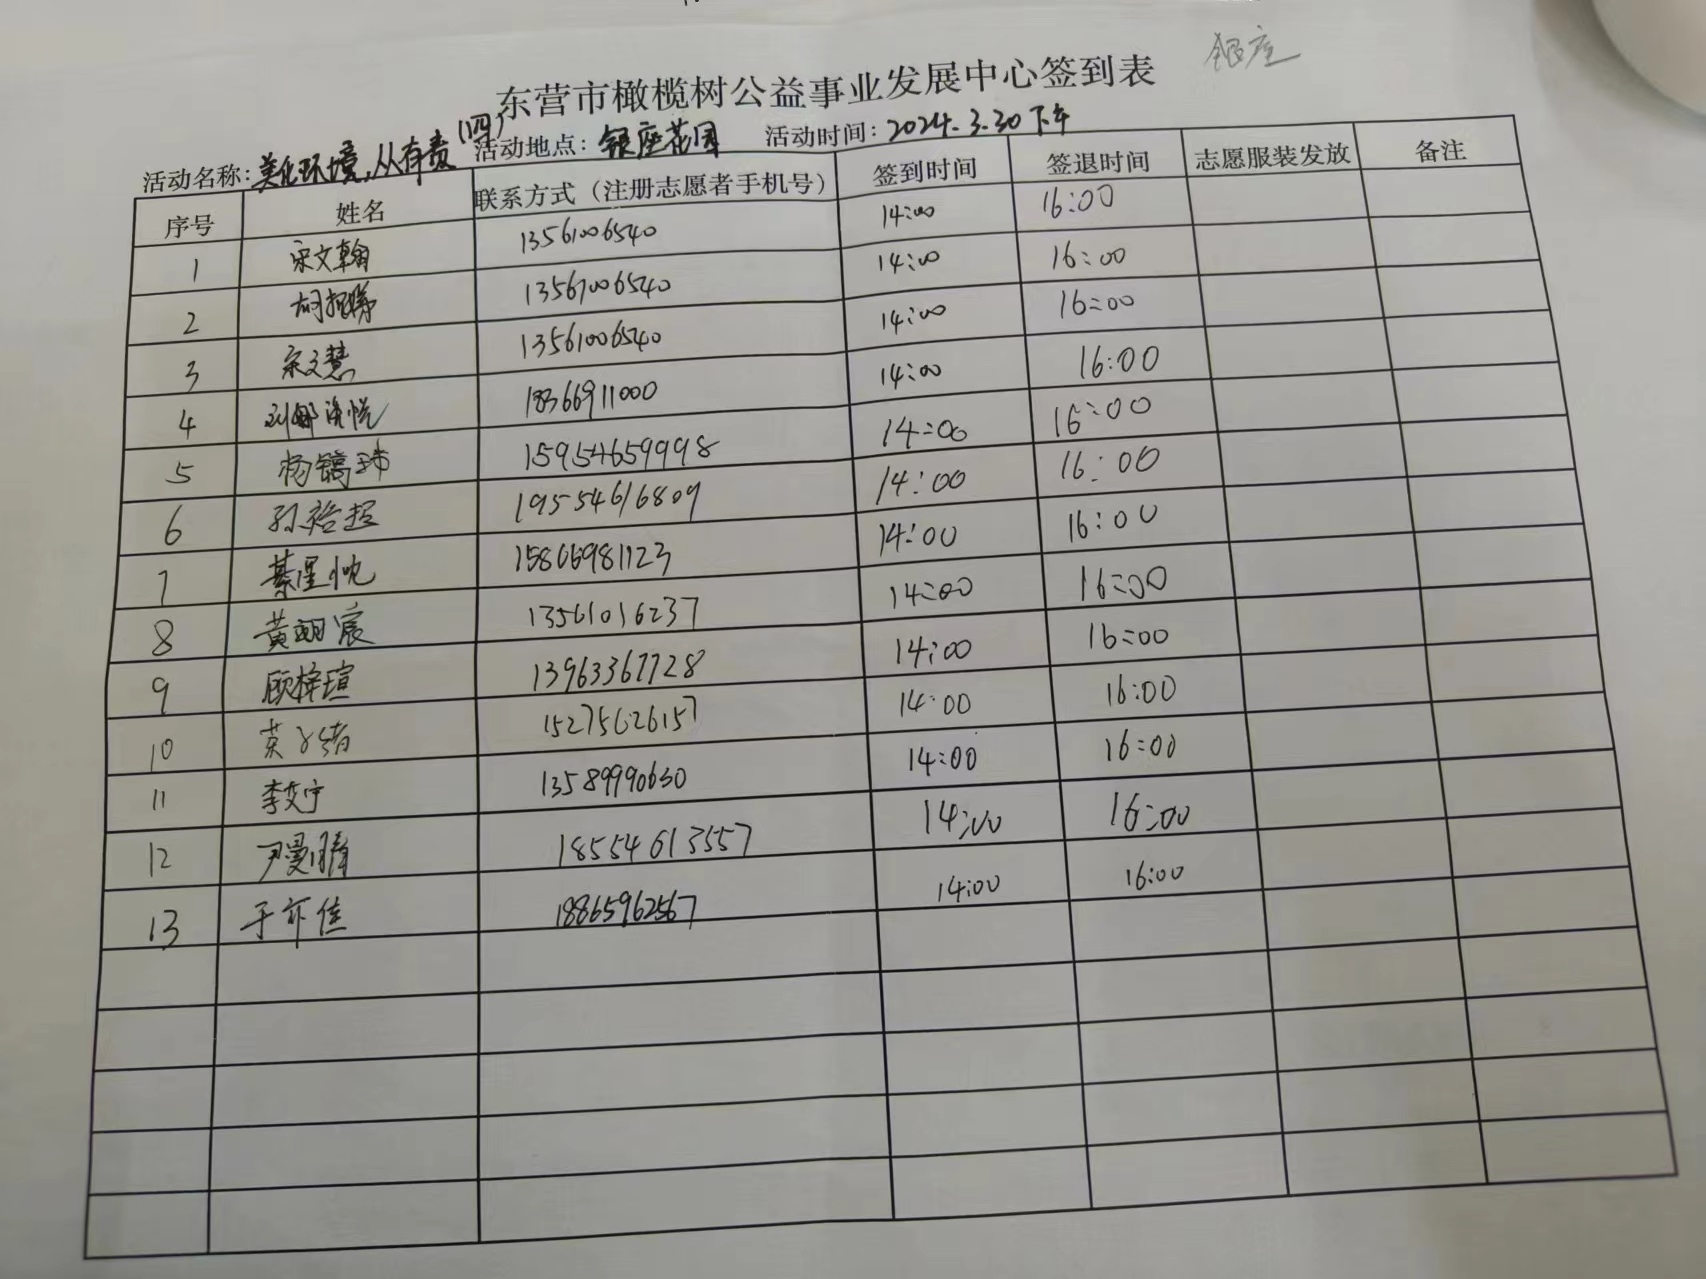 银座
东营市橄榄树公益事业发展中心签到表
活动名称:美化环境,从有责(四) 活动地点:银座花园 活动时间:2024.3.30下午
序号 姓名 联系方式(注册志愿者手机号) 签到时间 签退时间 志愿服装发放 备注
1 宋文翰 13561006540 14:00 16:00
2 13561006540 14:00 16:00
3 宋文慧 13561006540 14:00 16:00
4 18366911000 14:00 16:00
5 杨镐玮 15954659998 14:00 16:00
6 孙裕超 19554616809 14:00 16:00
7 綦星忱 15806981123 14:00 16:00
8 黄朗宸 13561016237 14:00 16:00
9 顾梓瑄 13963367728 14:00 16:00
10 15275626157 14:00 16:00
11 李奕宁 13589990630 14:00 16:00
12 尹曼晴 18554613557 14:00 16:00
13 于亦佳 18865962567 14:00 16:00